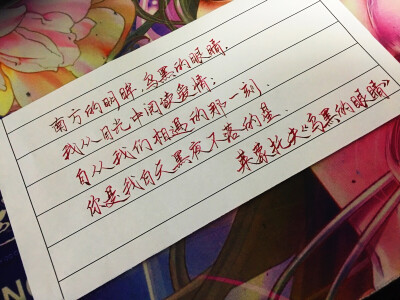 南方的明眸,乌黑的眼睛,
我从目光中阅读爱情;
自从我们相遇的那一刻.
你是我白天黑夜不落的星.
莱蒙托夫《乌黑的眼睛》